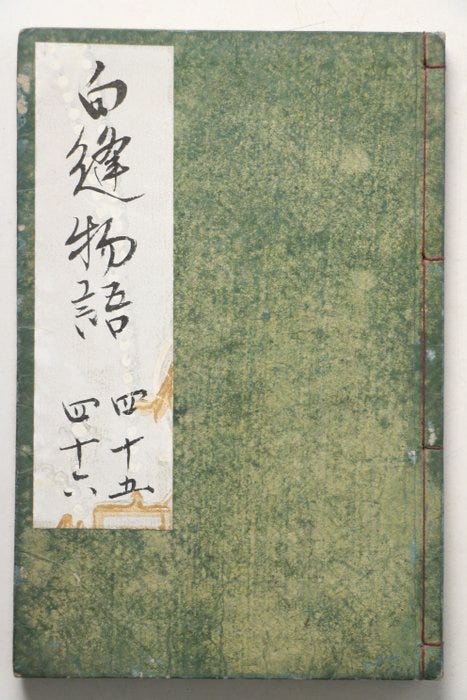 白縫物語
四十五
四十六